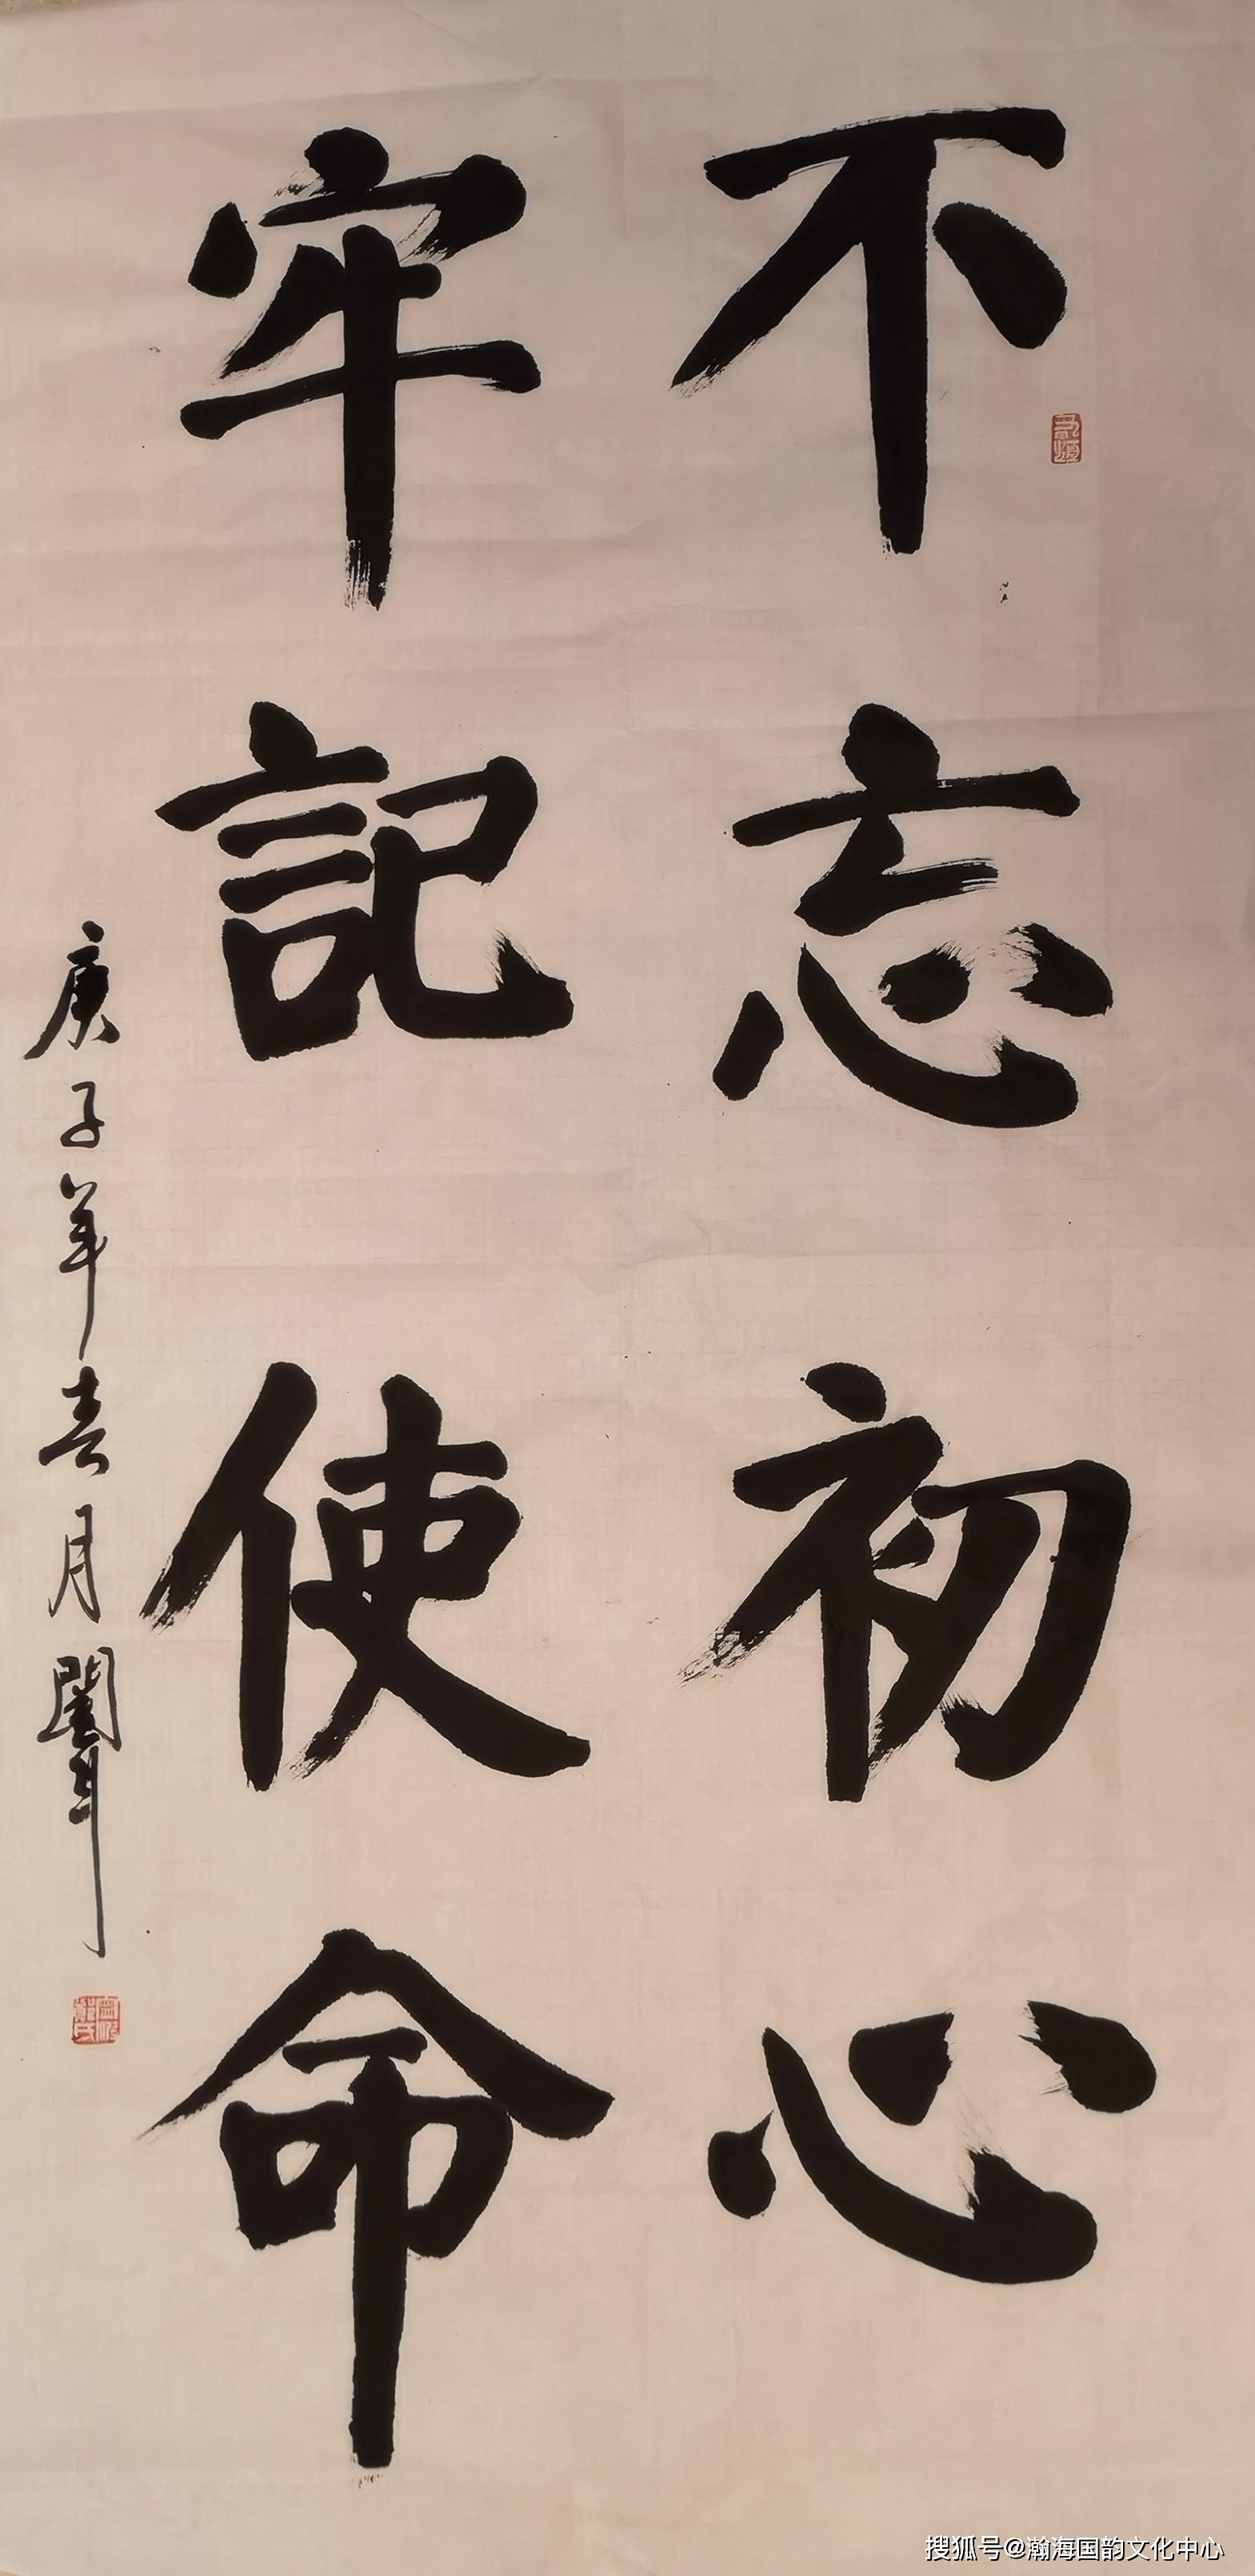 不忘初心
牢記使命
庚子年春月
搜狐号@瀚海国韵文化中心